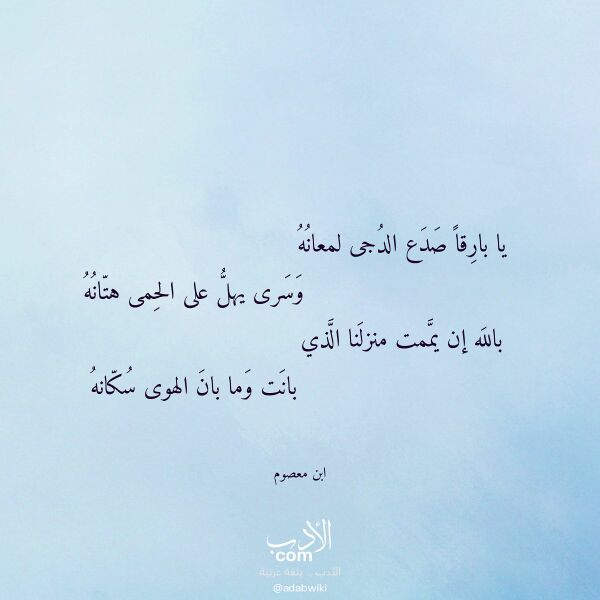 يا بارِقاً صَدَع الدُجى لمعانُهُ
وَسَرى يهلُّ على الحِمى هتّانُهُ
باللَه إن يمَّمت منزلَنا الَّذي
بانَت وَما بانَ الهوى سُكّانهُ
ابن معصوم
الأدب
com
الأدب .. بلغة عربية
@adabwiki